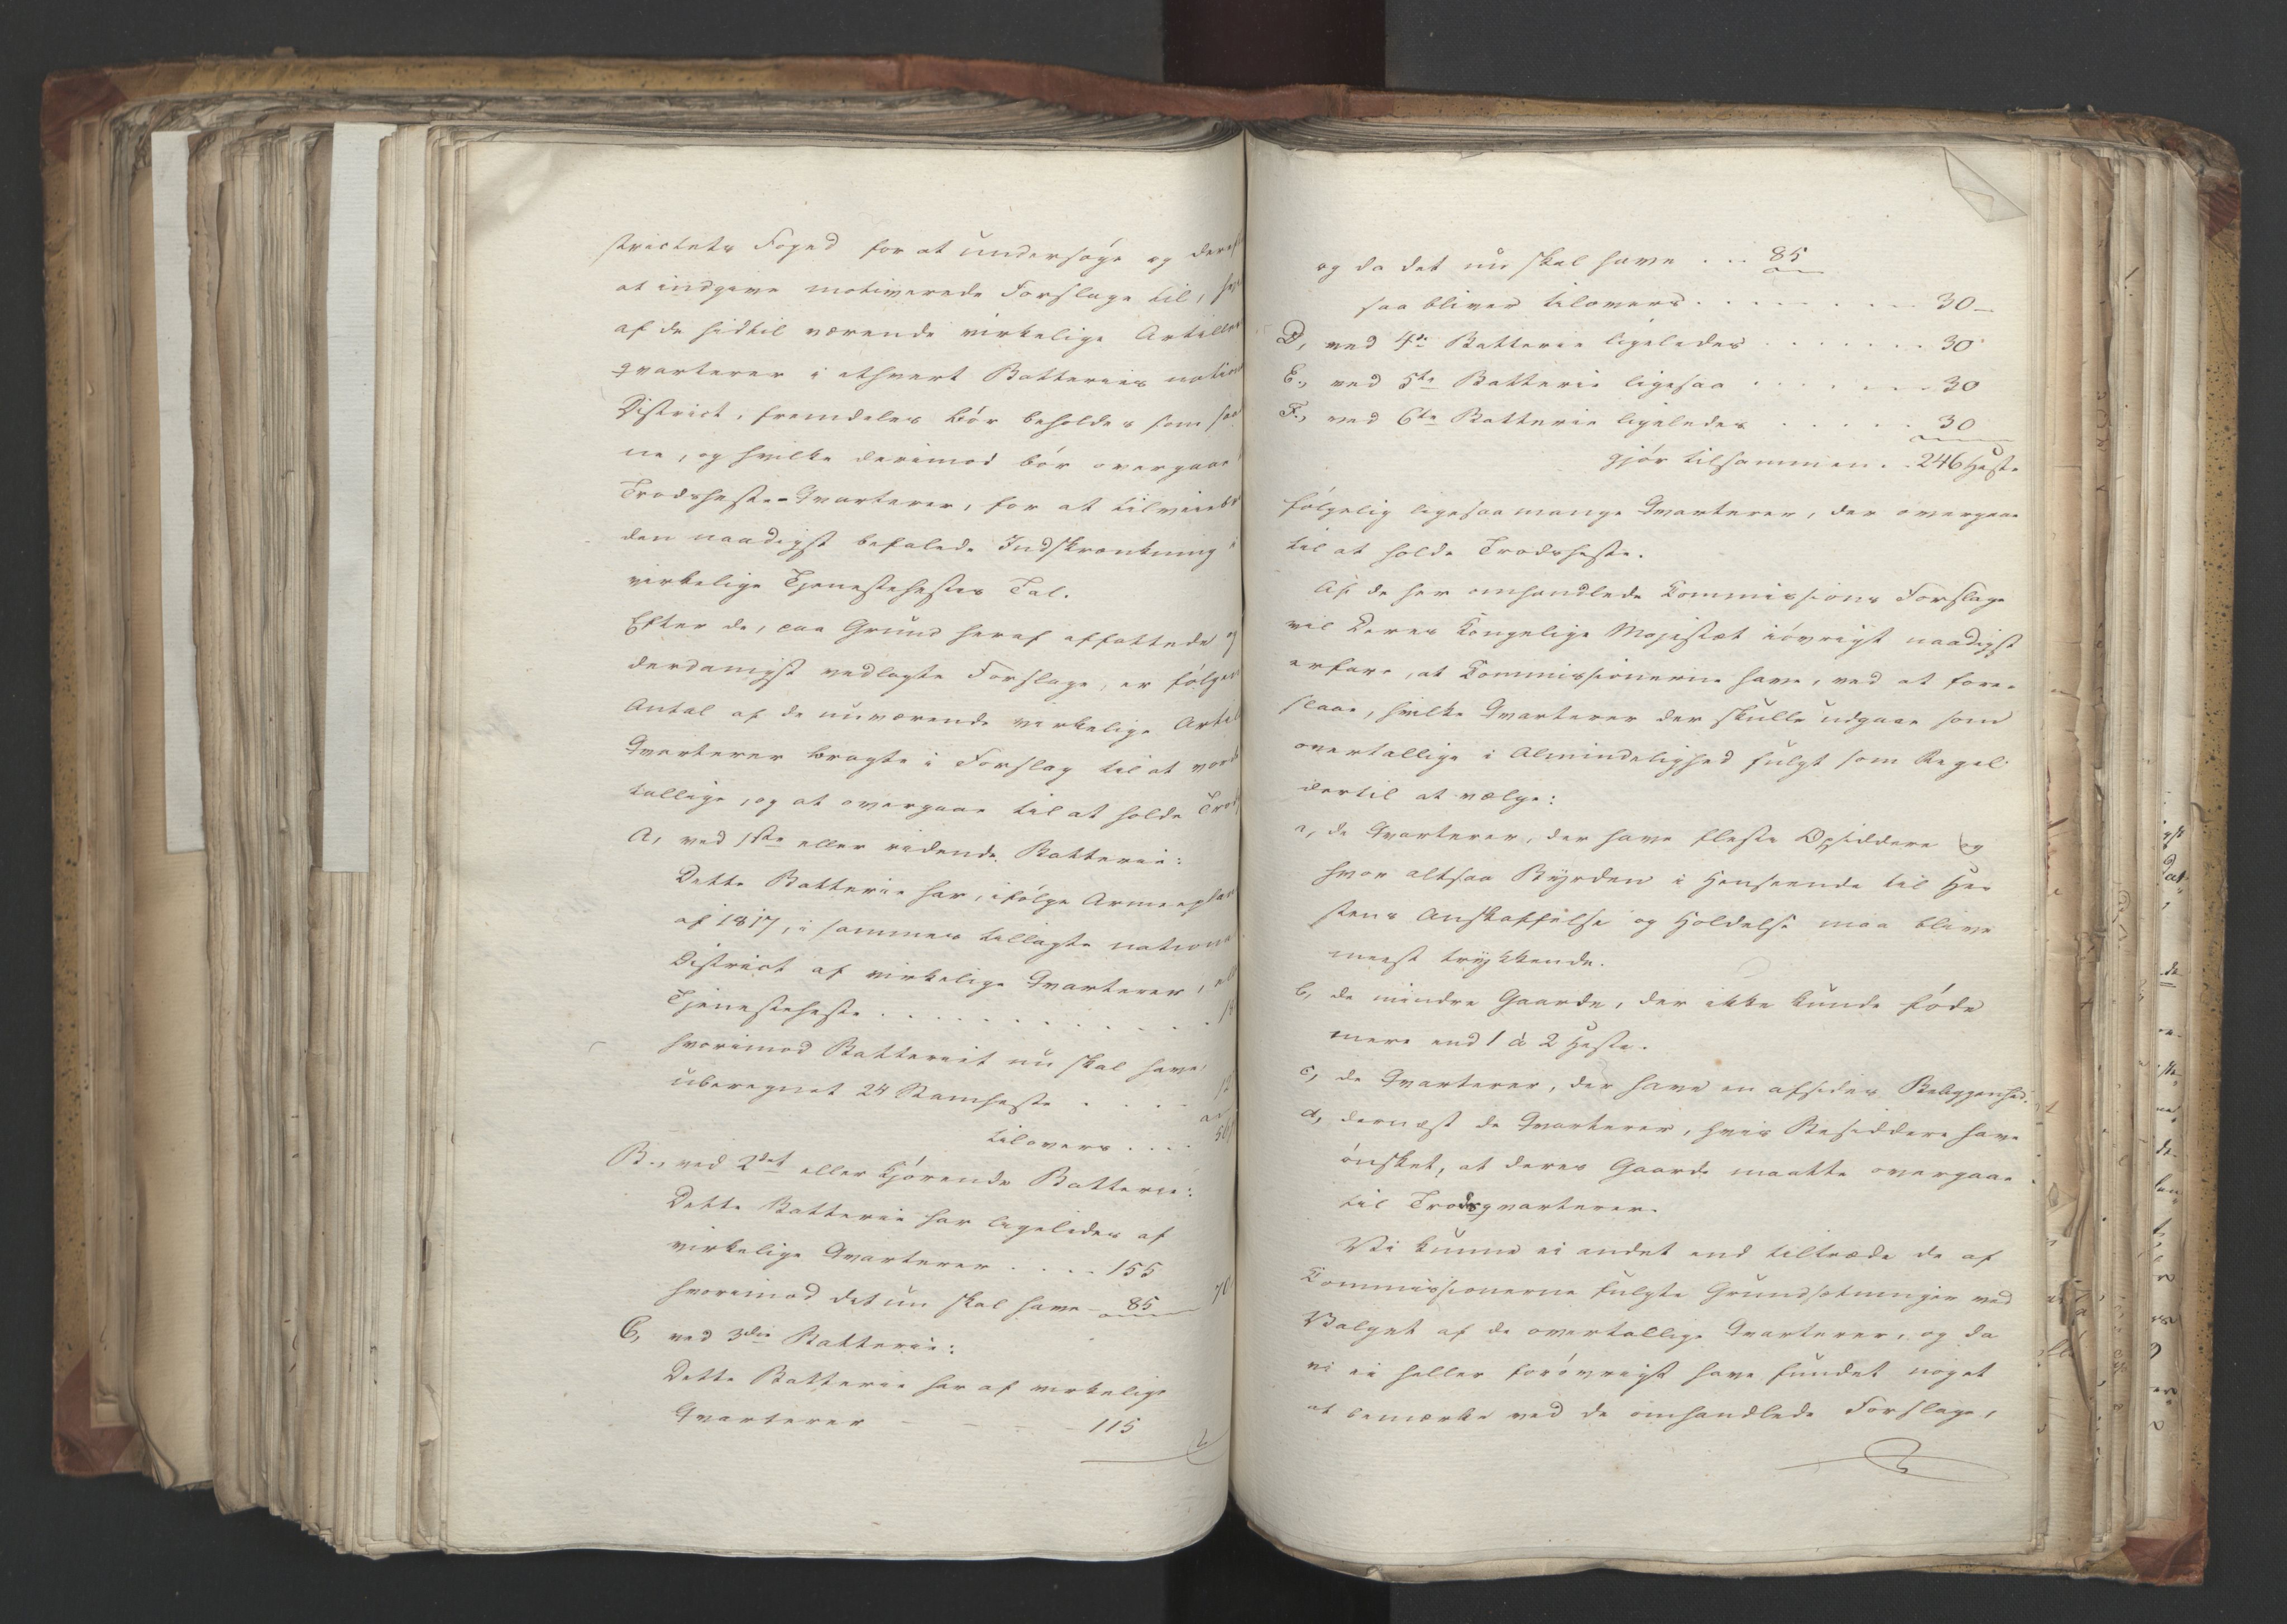 strictets Foged for at undersøge og deref
at indgive motiverede Forslage til, hvi
af de hidtil værende virkelige Artille
qvarterer i ethvert Batteries nation
District, fremdeles bør beholdes som saa
ne, og hvilke derimod bør overgaae
Trodsheste-Qvarterer, for at tilveiebr
den naadigst befalede Indskrænkning i
virkelige Tjenestehestes Tal.
Efter de, paa Grund heraf affattede og
derdanigst vedlagte Forslage, er følgen
Antal af de nuværende virkelige Artil
Qvarterer bragte i Forslag til at vord
tallige, og at overgaae til at holde Trod
A, ved 1ste eller ridende Batterie:
Dette Batterie har, ifølge Armeeplan
af 1817, i sammes tillagte nationa
District af virkelige Qvarterer, ell
Tjenesteheste . . . . . . . . . . . . 1
hvorimod Batteriet nu skal have
uberegnet 24 Stamheste . . . . 12
tilovers . . . . 56
B., ved 2det eller kjørende Batterie:
Dette Batterie har ligeledes af
virkelige Qvarterer . . . . 155
hvorimod det nu skal have - 85 70
C, ved 3die Batterie:
Dette Batterie har af virkelige
Qvarterer - - - - 115
og da det nu skal have . . . 85
saa bliver tilovers . . . . . . . . 30 -
D, ved 4de Batterie ligeledes . . . . . . . 30
E., ved 5te Batterie ligesaa . . . . . . . 30
F., ved 6te Batterie ligeledes . . . . . 30
gjør tilsammen . . 246 Heste
følgelig ligesaa mange Qvarterer, der overgaae
til at holde Trodsheste.
Af de her omhandlede Kommissions Forslage
vil Deres Kongelige Majestæt iøvrigt naadigst
erfare, at Kommissionerne have, ved at fore-
slaae, hvilke Qvarterer der skulle udgaae som
overtallige i Almindelighed fulgt som Regel
dertil at vælge:
a, de Qvarterer, der have fleste Opsiddere og
hvor altsaa Byrden i Henseende til He-
stens Anskaffelse og Holdelse maa blive
meest trykkende.
b, de mindre Gaarde, der ikke kunde føde
mere end 1 à 2 Heste.
c, de Qvarterer, der have en afsides Beliggenhed.
d, dernæst de Qvarterer, hvis Besiddere have
ønsket, at deres Gaarde maatte overgaae
til Trodsqvarterer.
Vi kunne ei andet end tiltræde de af
Kommissionerne fulgte Grundsætninger ved
Valget af de overtallige Qvarterer, og da
vi ei heller forøvrigt have fundet noget
at bemærke ved de omhandlede Forslage,